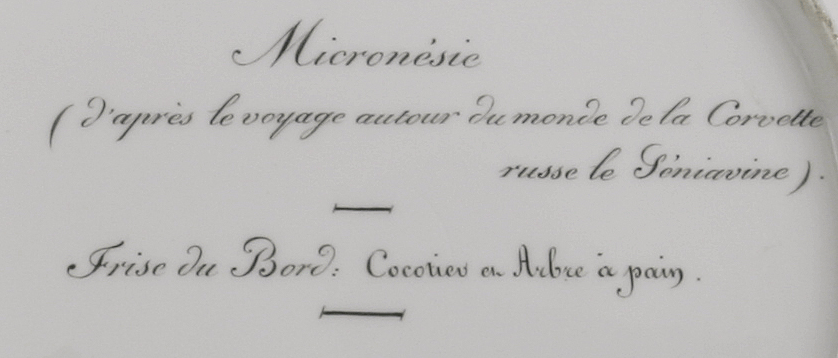 Micronésie
(d'après le voyage autour du monde de la Corvette
russe le Séniavine).
Frise du Bord: Cocotier et Arbre à pain.